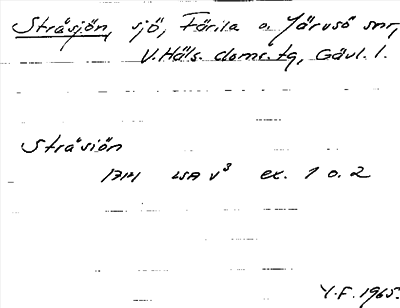 Stråsjön, sjö, Färila o. Järvsö snr,
V. Häls. doms. tg, Gävl. l.
Stråsiön
1714 LSA V³ ex. 1 o. 2
Y.F. 1965.